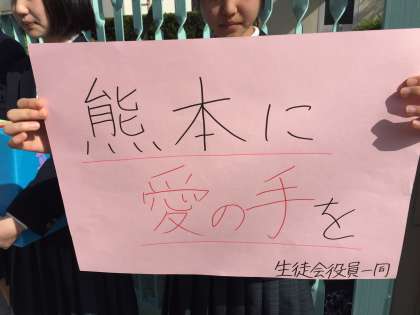 熊本に
愛の手を
生徒会役員一同